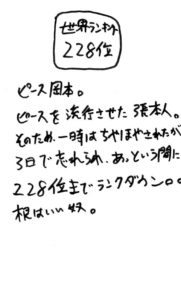 世界ランキング
228位
ピース岡本。
ピースを流行させた張本人。
そのため、一時はちやほやされたが
3日で忘れられ、あっという間に
228位までランクダウン。。
根はいい奴。